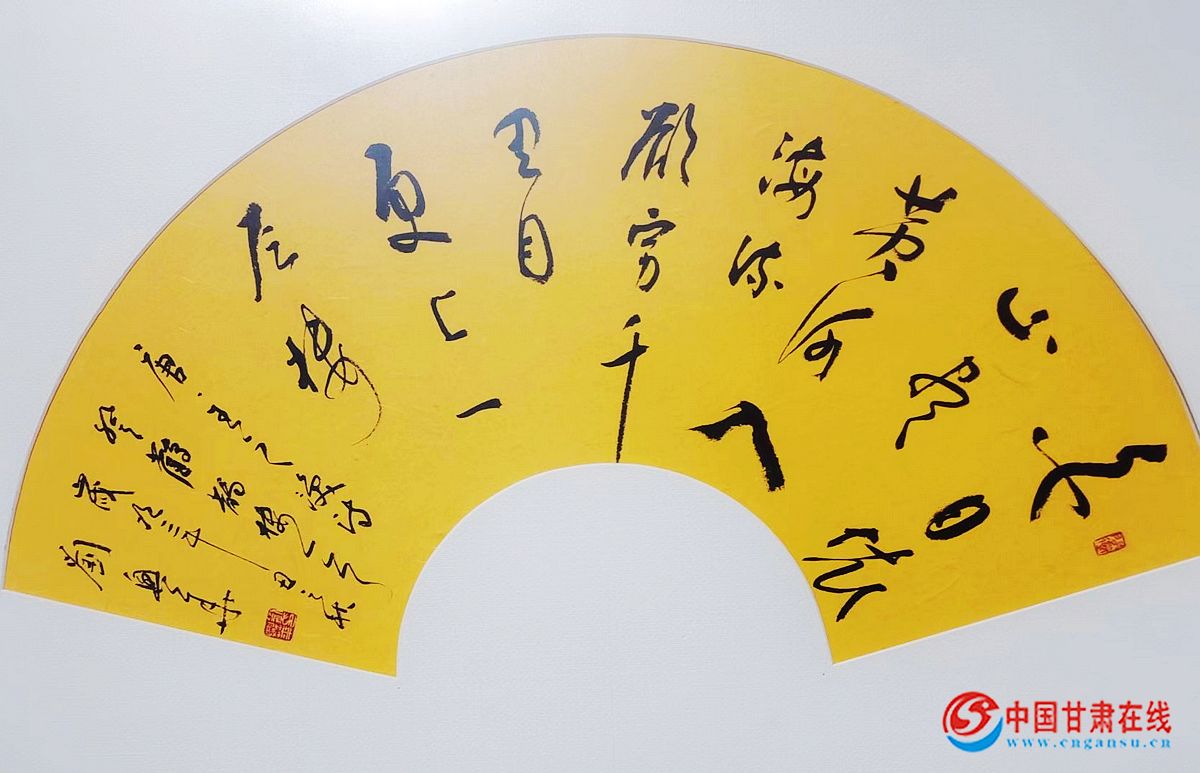 白日依
山尽
黄河入
海流
欲穷千
里目
更上一
层楼
唐·王之涣诗
登鹳鹊楼
中国甘肃在线
www.cngansu.cn